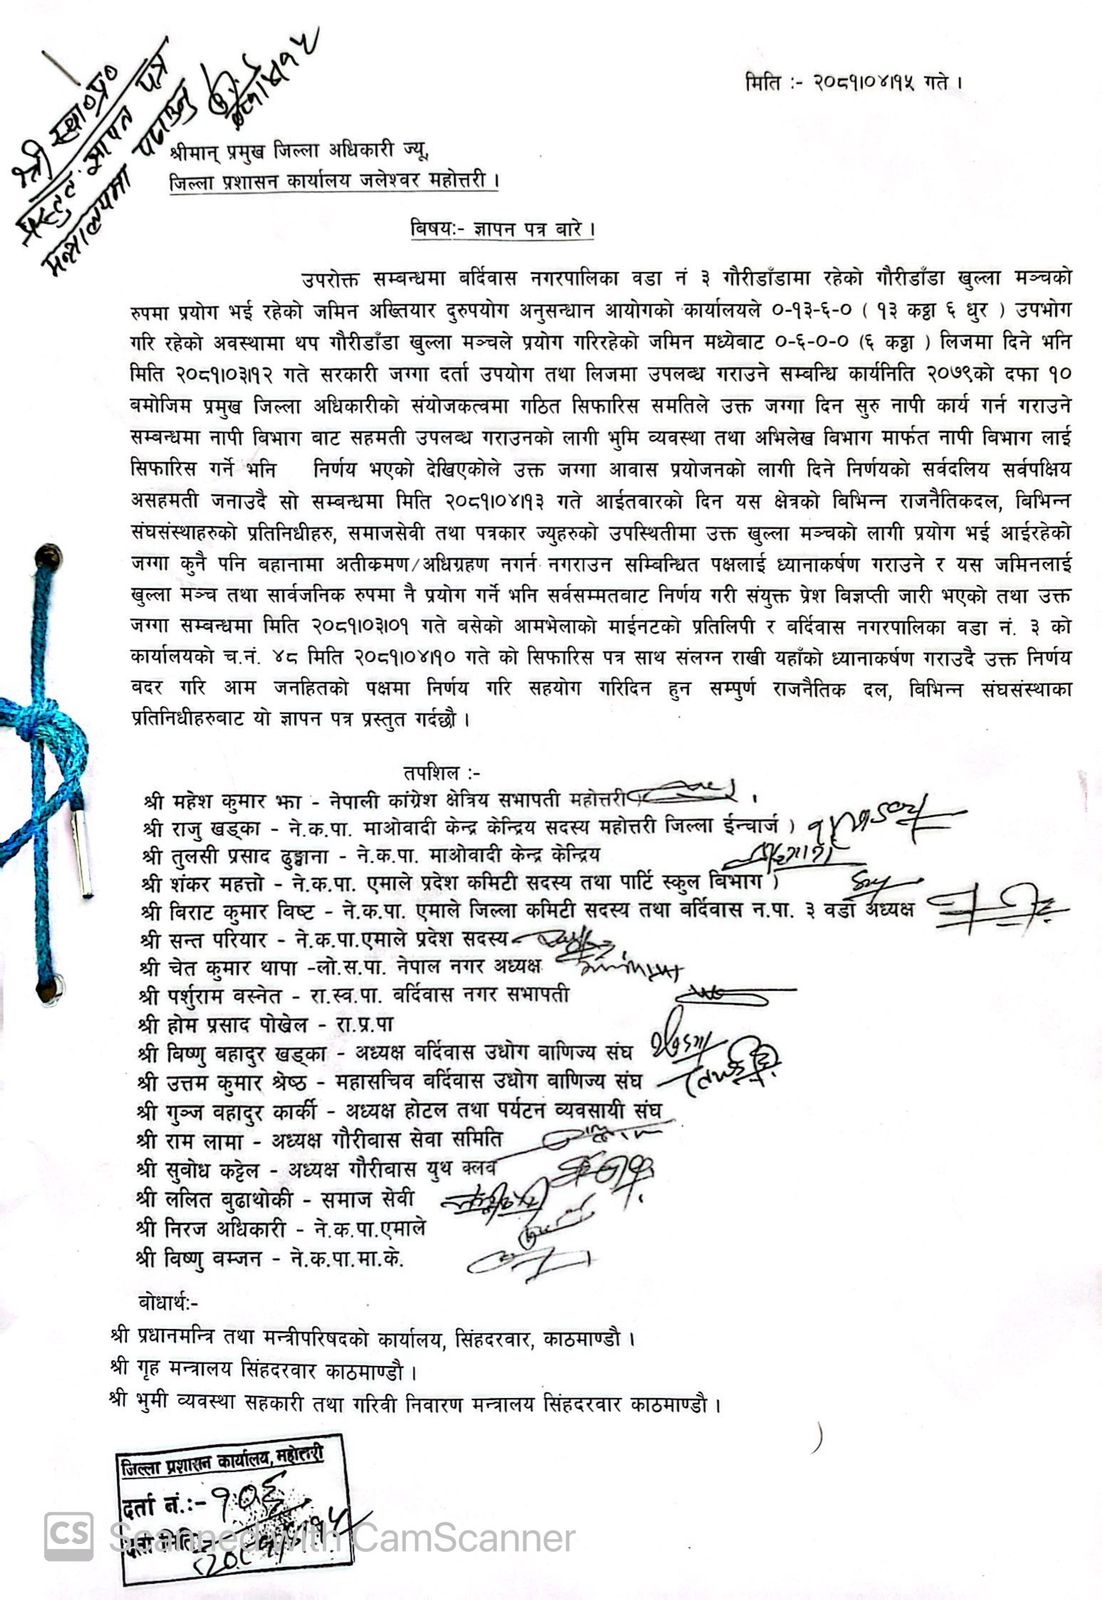 श्री स्था०प्र०
प्रस्तुत ज्ञापन पत्र
मन्त्रालयमा पठाउनु
मिति :- २०८१।०४।१५ गते ।
श्रीमान् प्रमुख जिल्ला अधिकारी ज्यू,
जिल्ला प्रशासन कार्यालय जलेश्वर महोत्तरी ।
बिषय:- ज्ञापन पत्र बारे ।
उपरोक्त सम्बन्धमा बर्दिवास नगरपालिका वडा नं ३ गौरीडाँडामा रहेको गौरीडाँडा खुल्ला मञ्चको
रुपमा प्रयोग भई रहेको जमिन अख्तियार दुरुपयोग अनुसन्धान आयोगको कार्यालयले ०-१३-६-० ( १३ कट्ठा ६ धुर ) उपभोग
गरि रहेको अवस्थामा थप गौरीडाँडा खुल्ला मञ्चले प्रयोग गरिरहेको जमिन मध्येबाट ०-६-०-० (६ कट्ठा ) लिजमा दिने भनि
मिति २०८१।०३।१२ गते सरकारी जग्गा दर्ता उपयोग तथा लिजमा उपलब्ध गराउने सम्बन्धि कार्यनिति २०७९को दफा १०
बमोजिम प्रमुख जिल्ला अधिकारीको संयोजकत्वमा गठित सिफारिस समतिले उक्त जग्गा दिन सुरु नापी कार्य गर्न गराउने
सम्बन्धमा नापी विभाग बाट सहमती उपलब्ध गराउनको लागी भुमि व्यवस्था तथा अभिलेख विभाग मार्फत नापी विभाग लाई
सिफारिस गर्ने भनि निर्णय भएको देखिएकोले उक्त जग्गा आवास प्रयोजनको लागी दिने निर्णयको सर्वदलिय सर्वपक्षिय
असहमती जनाउदै सो सम्बन्धमा मिति २०८१।०४।१३ गते आईतवारको दिन यस क्षेत्रको बिभिन्न राजनैतिकदल, बिभिन्न
संघसंस्थाहरुको प्रतिनिधीहरु, समाजसेवी तथा पत्रकार ज्युहरुको उपस्थितीमा उक्त खुल्ला मञ्चको लागी प्रयोग भई आईरहेको
जग्गा कुनै पनि बहानामा अतीकमण/अधिग्रहण नगर्न नगराउन सम्बिन्धित पक्षलाई ध्यानाकर्षण गराउने र यस जमिनलाई
खुल्ला मञ्च तथा सार्वजनिक रुपमा नै प्रयोग गर्ने भनि सर्वसम्मतबाट निर्णय गरी संयुक्त प्रेश विज्ञप्ती जारी भएको तथा उक्त
जग्गा सम्बन्धमा मिति २०८१।०३।०१ गते बसेको आमभेलाको माईनटको प्रतिलिपी र बर्दिवास नगरपालिका वडा नं. ३ को
कार्यालयको च.नं. ४८ मिति २०८१।०४।१० गते को सिफारिस पत्र साथ संलग्न राखी यहाँको ध्यानाकर्षण गराउदै उक्त निर्णय
वदर गरि आम जनहितको पक्षमा निर्णय गरि सहयोग गरिदिन हुन सम्पुर्ण राजनैतिक दल, विभिन्न संघसंस्थाका
प्रतिनिधीहरुबाट यो ज्ञापन पत्र प्रस्तुत गर्दछौ ।
तपशिल :-
श्री महेश कुमार झा - नेपाली कांग्रेश क्षेत्रिय सभापती महोत्तरी
श्री राजु खड्का - ने.क.पा. माओवादी केन्द्र केन्द्रिय सदस्य महोत्तरी जिल्ला ईन्चार्ज )
श्री तुलसी प्रसाद ढुङ्गाना - ने.क.पा. माओवादी केन्द्र केन्द्रिय
श्री शंकर महत्तो - ने.क.पा. एमाले प्रदेश कमिटी सदस्य तथा पार्टि स्कुल विभाग )
श्री बिराट कुमार विष्ट - ने.क.पा. एमाले जिल्ला कमिटी सदस्य तथा बर्दिवास न.पा. ३ वडा अध्यक्ष
श्री सन्त परियार - ने.क.पा.एमाले प्रदेश सदस्य
श्री चेत कुमार थापा -लो.स.पा. नेपाल नगर अध्यक्ष
श्री पर्शुराम वस्नेत - रा.स्व.पा. बर्दिवास नगर सभापती
श्री होम प्रसाद पोखेल - रा.प्र.पा
श्री विष्णु बहादुर खड्का - अध्यक्ष बर्दिवास उधोग वाणिज्य संघ
श्री उत्तम कुमार श्रेष्ठ - महासचिव बर्दिवास उधोग वाणिज्य संघ
श्री गुञ्ज वहादुर कार्की - अध्यक्ष होटल तथा पर्यटन व्यवसायी संघ
श्री राम लामा - अध्यक्ष गौरीवास सेवा समिति
श्री सुवोध कट्टेल - अध्यक्ष गौरीबास युथ क्लव
श्री ललित बुढाथोकी - समाज सेवी
श्री निरज अधिकारी - ने.क.पा.एमाले
श्री विष्णु वम्जन - ने.क.पा.मा.के.
बोधार्थ:-
श्री प्रधानमन्त्रि तथा मन्त्रीपरिषदको कार्यालय, सिंहदरवार, काठमाण्डौ ।
श्री गृह मन्त्रालय सिंहदरवार काठमाण्डौ ।
श्री भुमी व्यवस्था सहकारी तथा गरिवी निवारण मन्त्रालय सिंहदरवार काठमाण्डौ ।
जिल्ला प्रशासन कार्यालय, महोत्तरी
दर्ता नं.:- १०६
CS Scanned with CamScanner